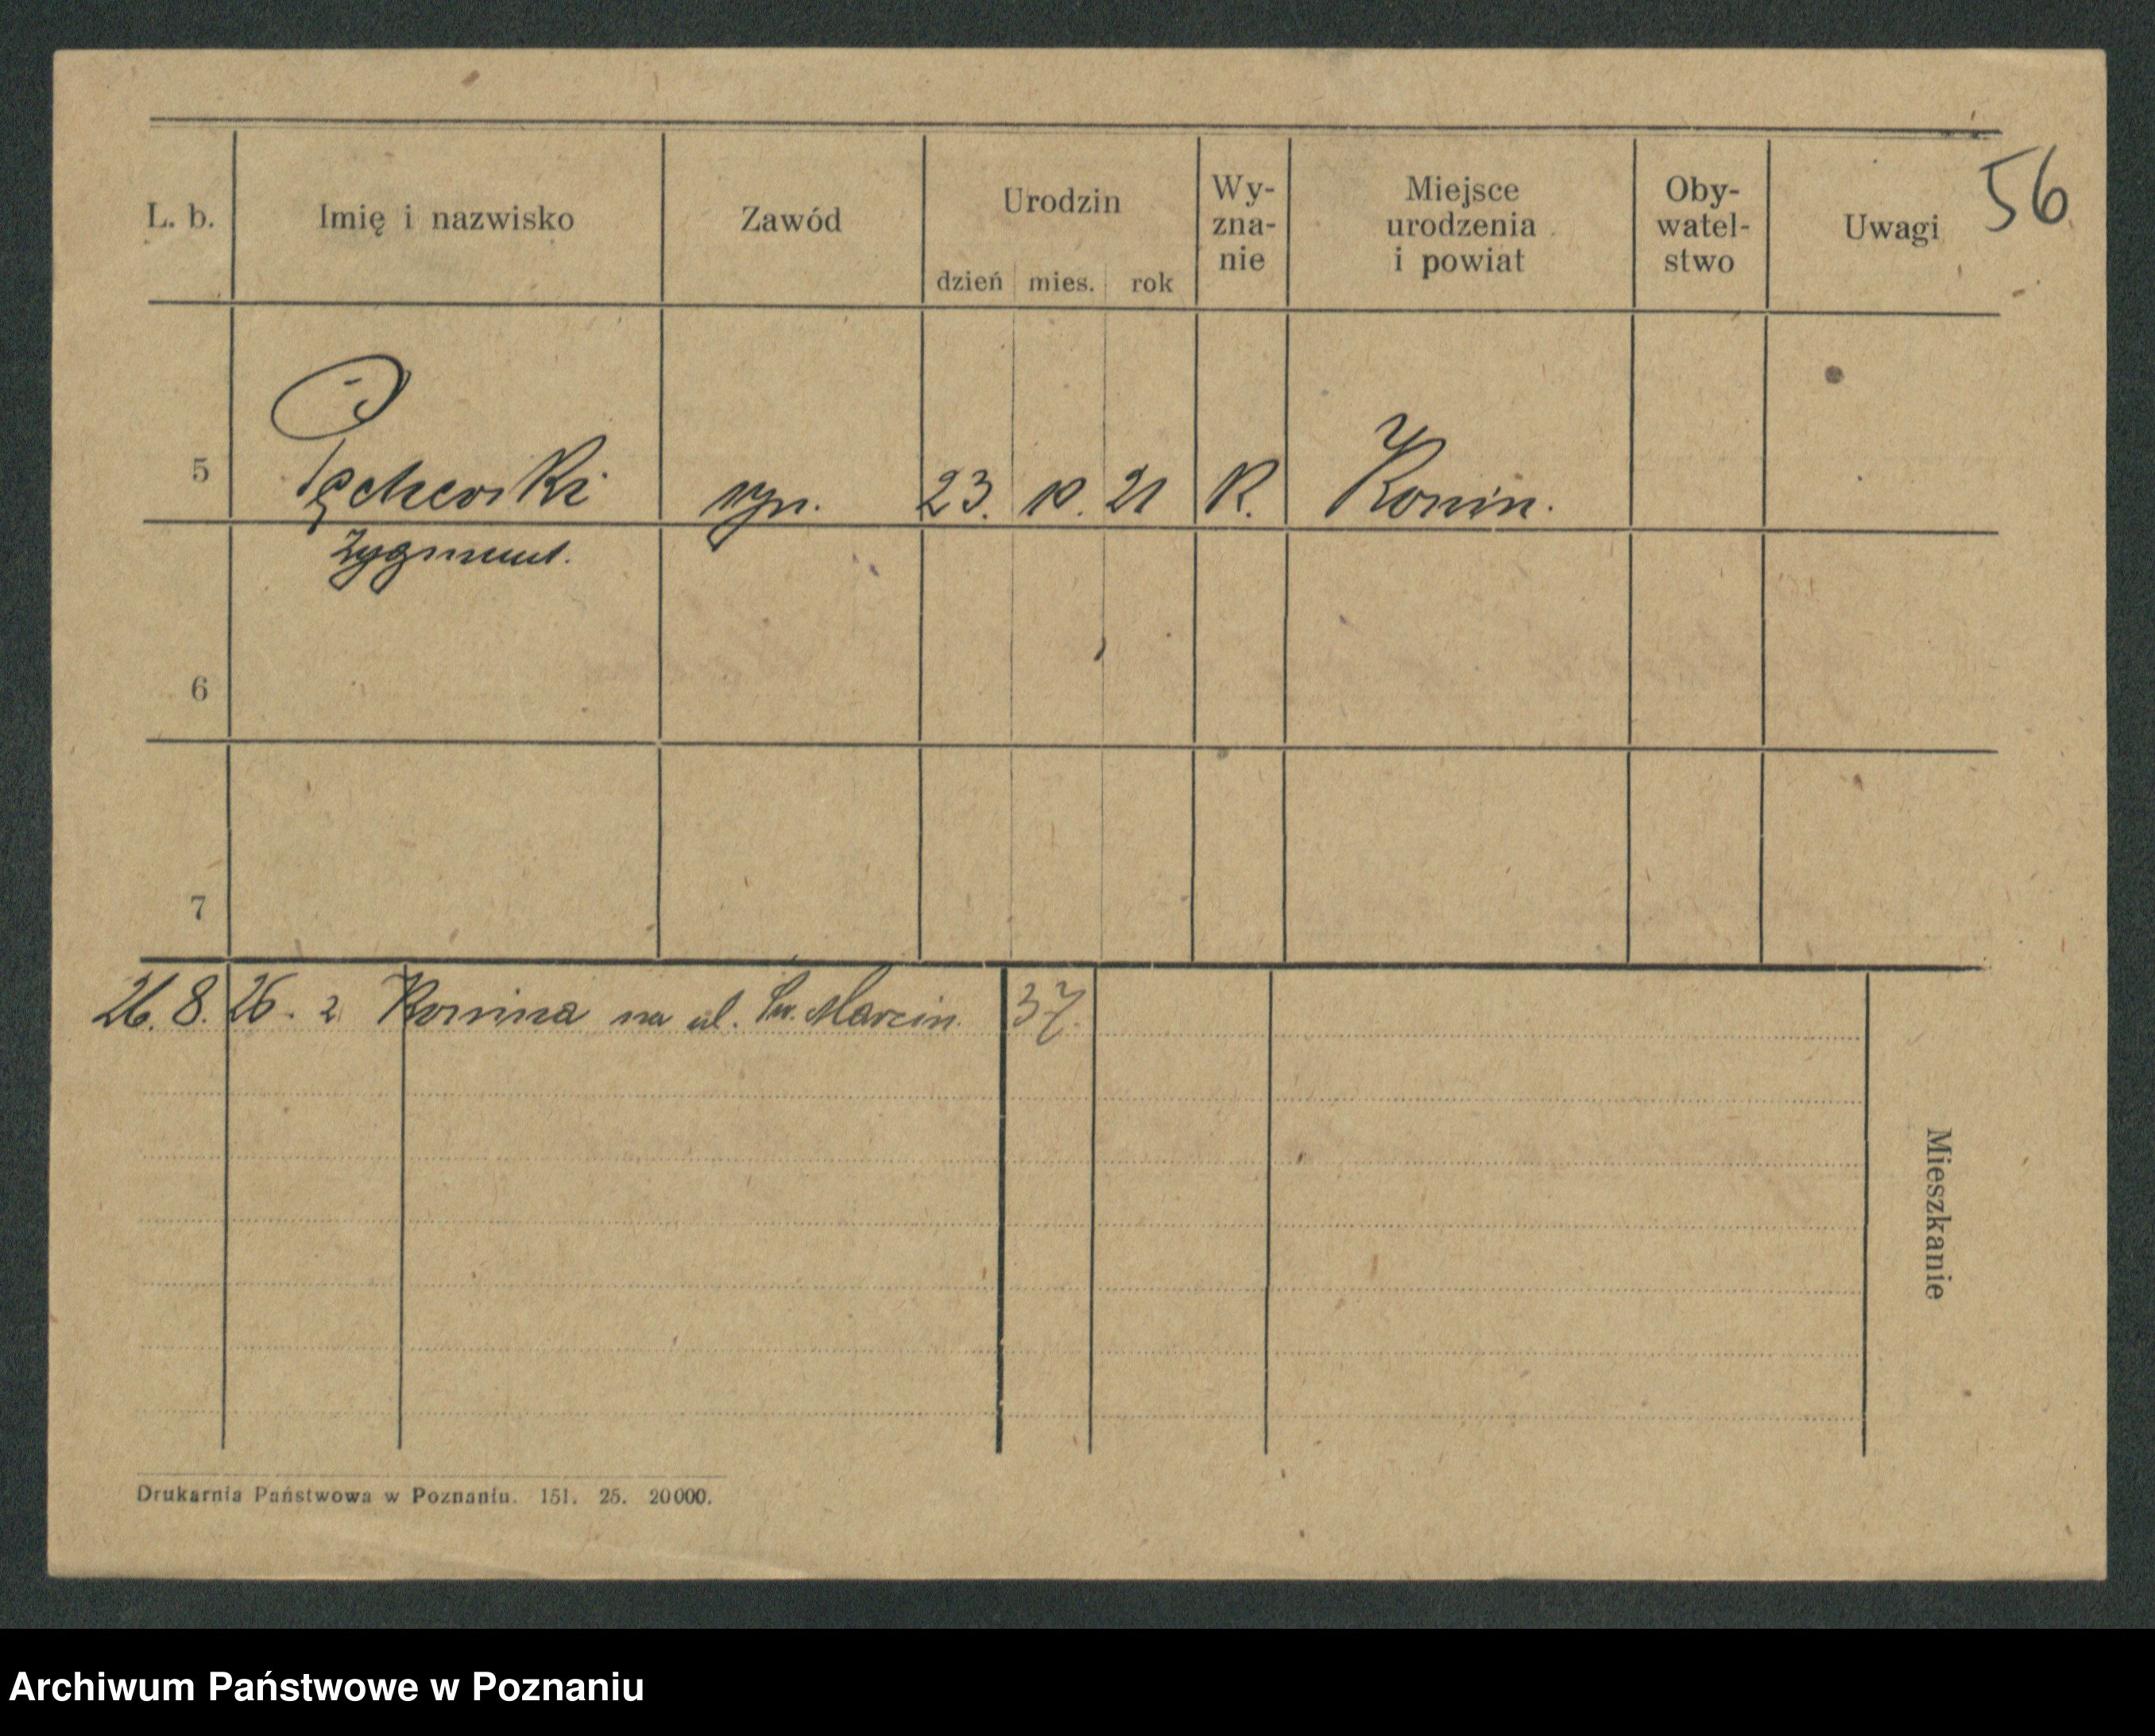 L. b. Imię i nazwisko Zawód Urodzin dzień mies. rok Wy-zna-nie Miejsce urodzenia i powiat Oby-watel-stwo Uwagi 56
5 syn. 23. 10. 21 K. Konin.
Zygmunt.
6
7
26. 8. 26. z Konina na ul. Św. Marcin 37.
Mieszkanie
Drukarnia Państwowa w Poznaniu. 151. 25. 20000.
Archiwum Państwowe w Poznaniu